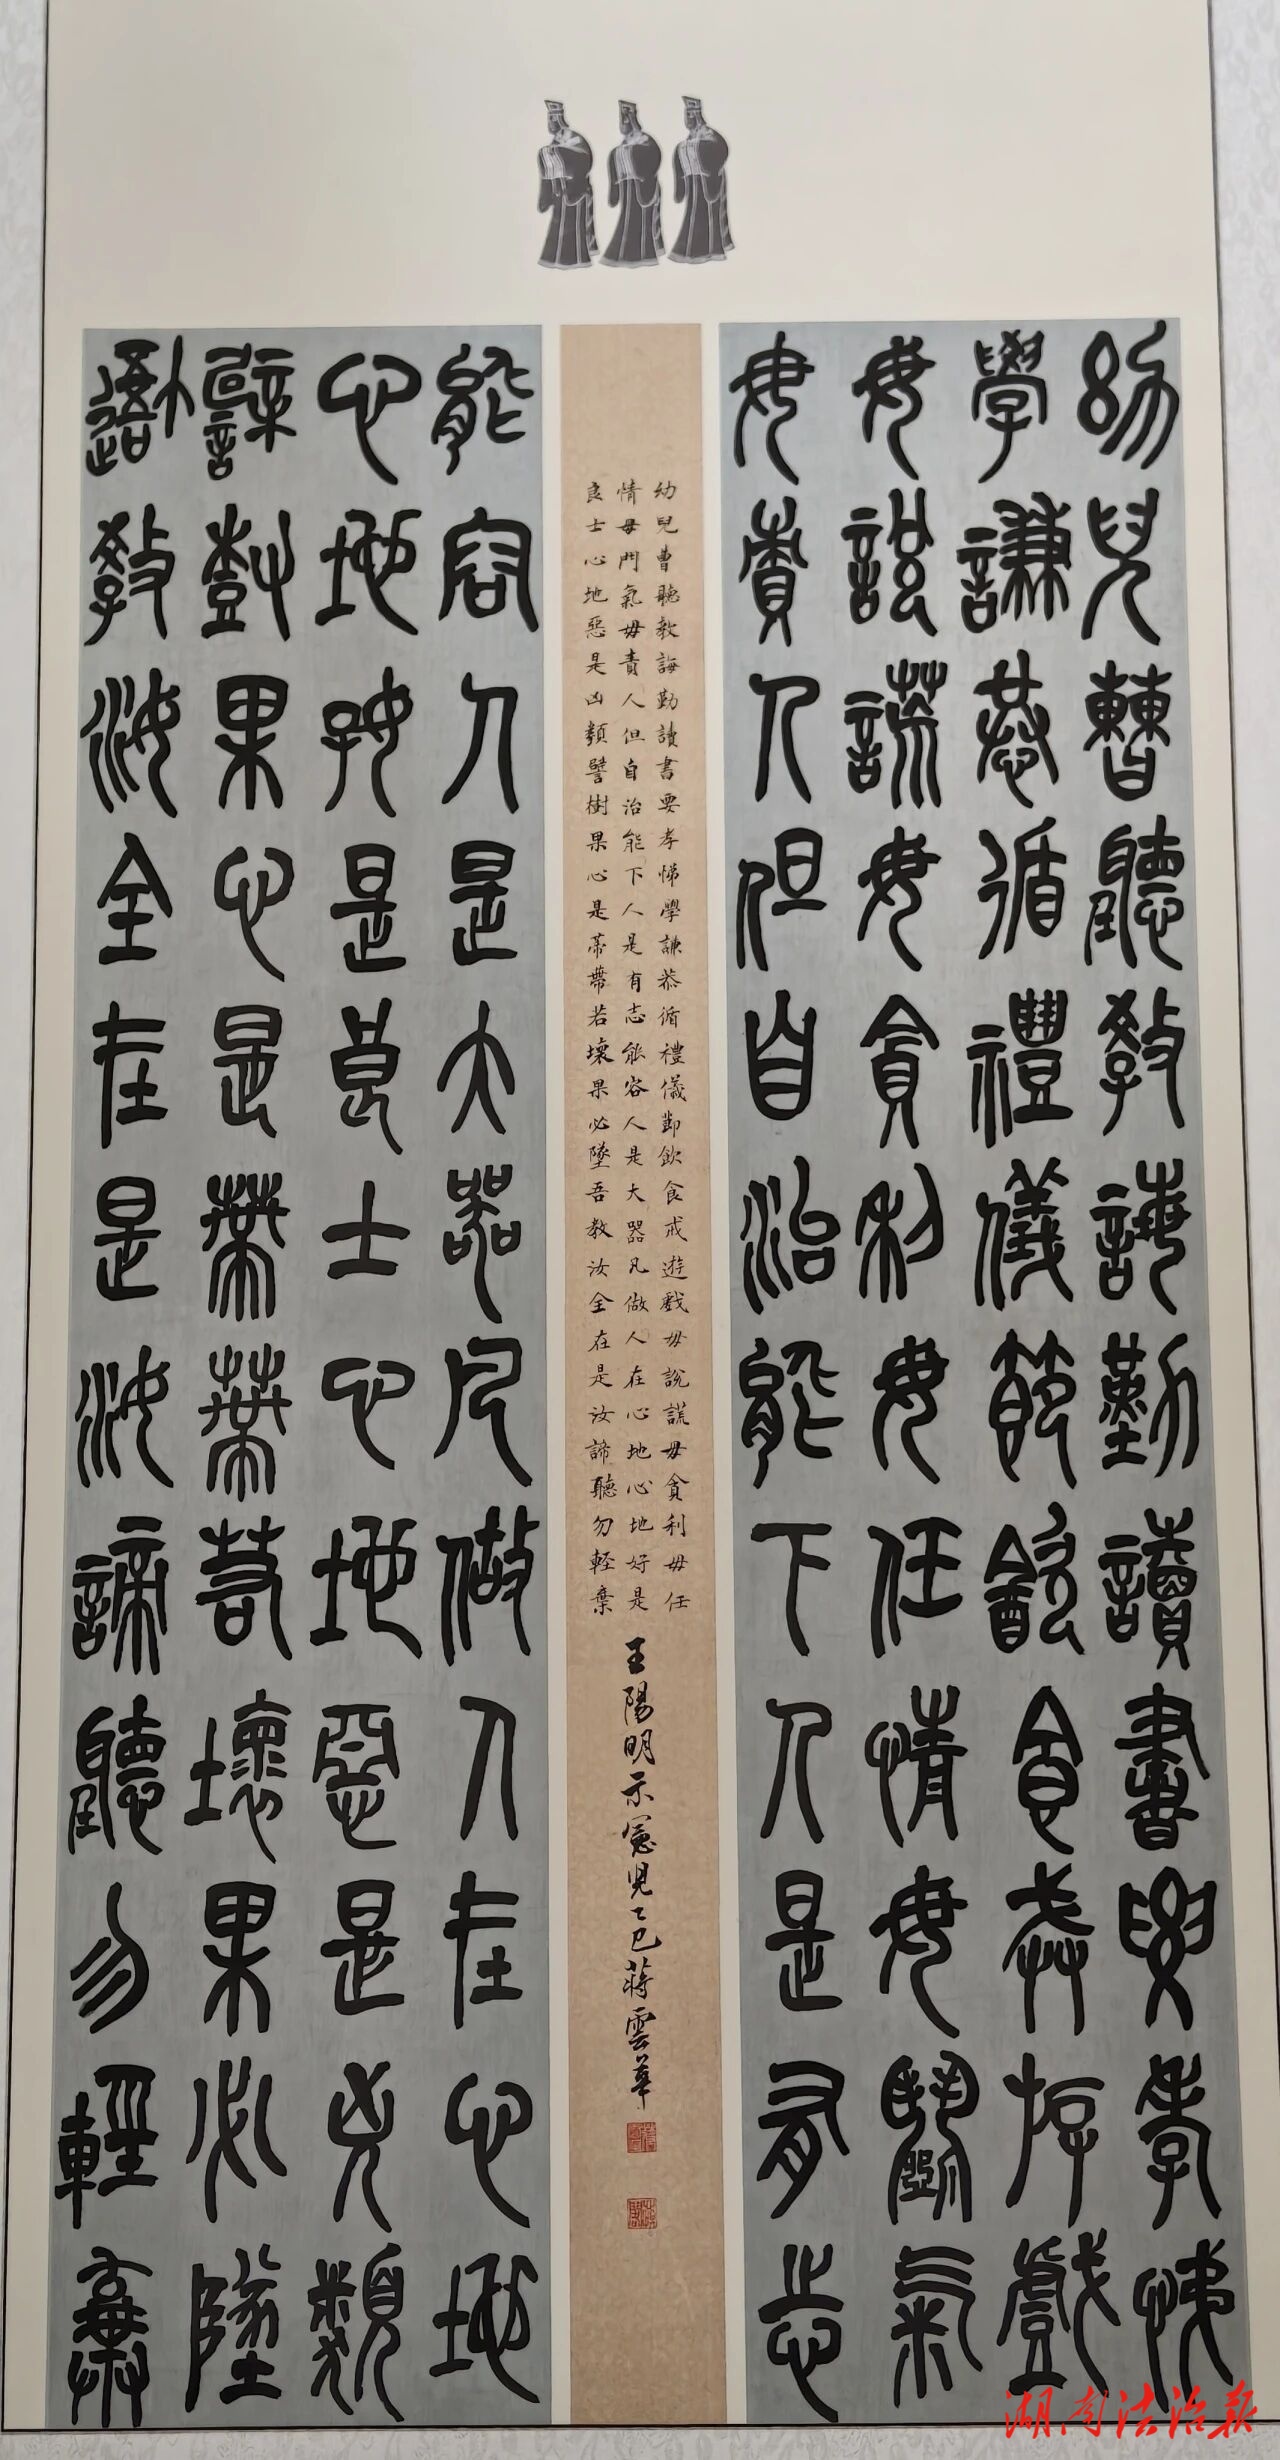 幼兒曹聽教誨勤讀書要孝悌
學謙恭循禮儀節飲食戒遊戲
毋說謊毋貪利毋任情毋鬥氣
毋責人但自治能下人是有志
幼兒曹聽教誨勤讀書要孝悌學謙恭循禮儀節飲食戒遊戲毋說謊毋貪利毋任
情毋鬥氣毋責人但自治能下人是有志能容人是大器凡做人在心地心地好是
良士心地惡是凶類譬樹果心是蒂蒂若壞果必墜吾教汝全在是汝諦聽勿輕棄
王陽明示憲兒乙巳蔣雲華
能容人是大器凡做人在心地
心地好是良士心地惡是凶類
譬樹果心是蒂蒂若壞果必墜
吾教汝全在是汝諦聽勿輕棄
湖南法治报